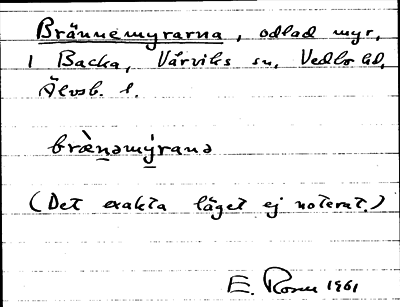 Brännemyrarna, odlad myr,
1 Backa, Vårviks sn, Vedbo hd,
Älvsb. l.
brä̀nəmýrana
(Det exakta läget ej noterat.)
E. Rosen 1961